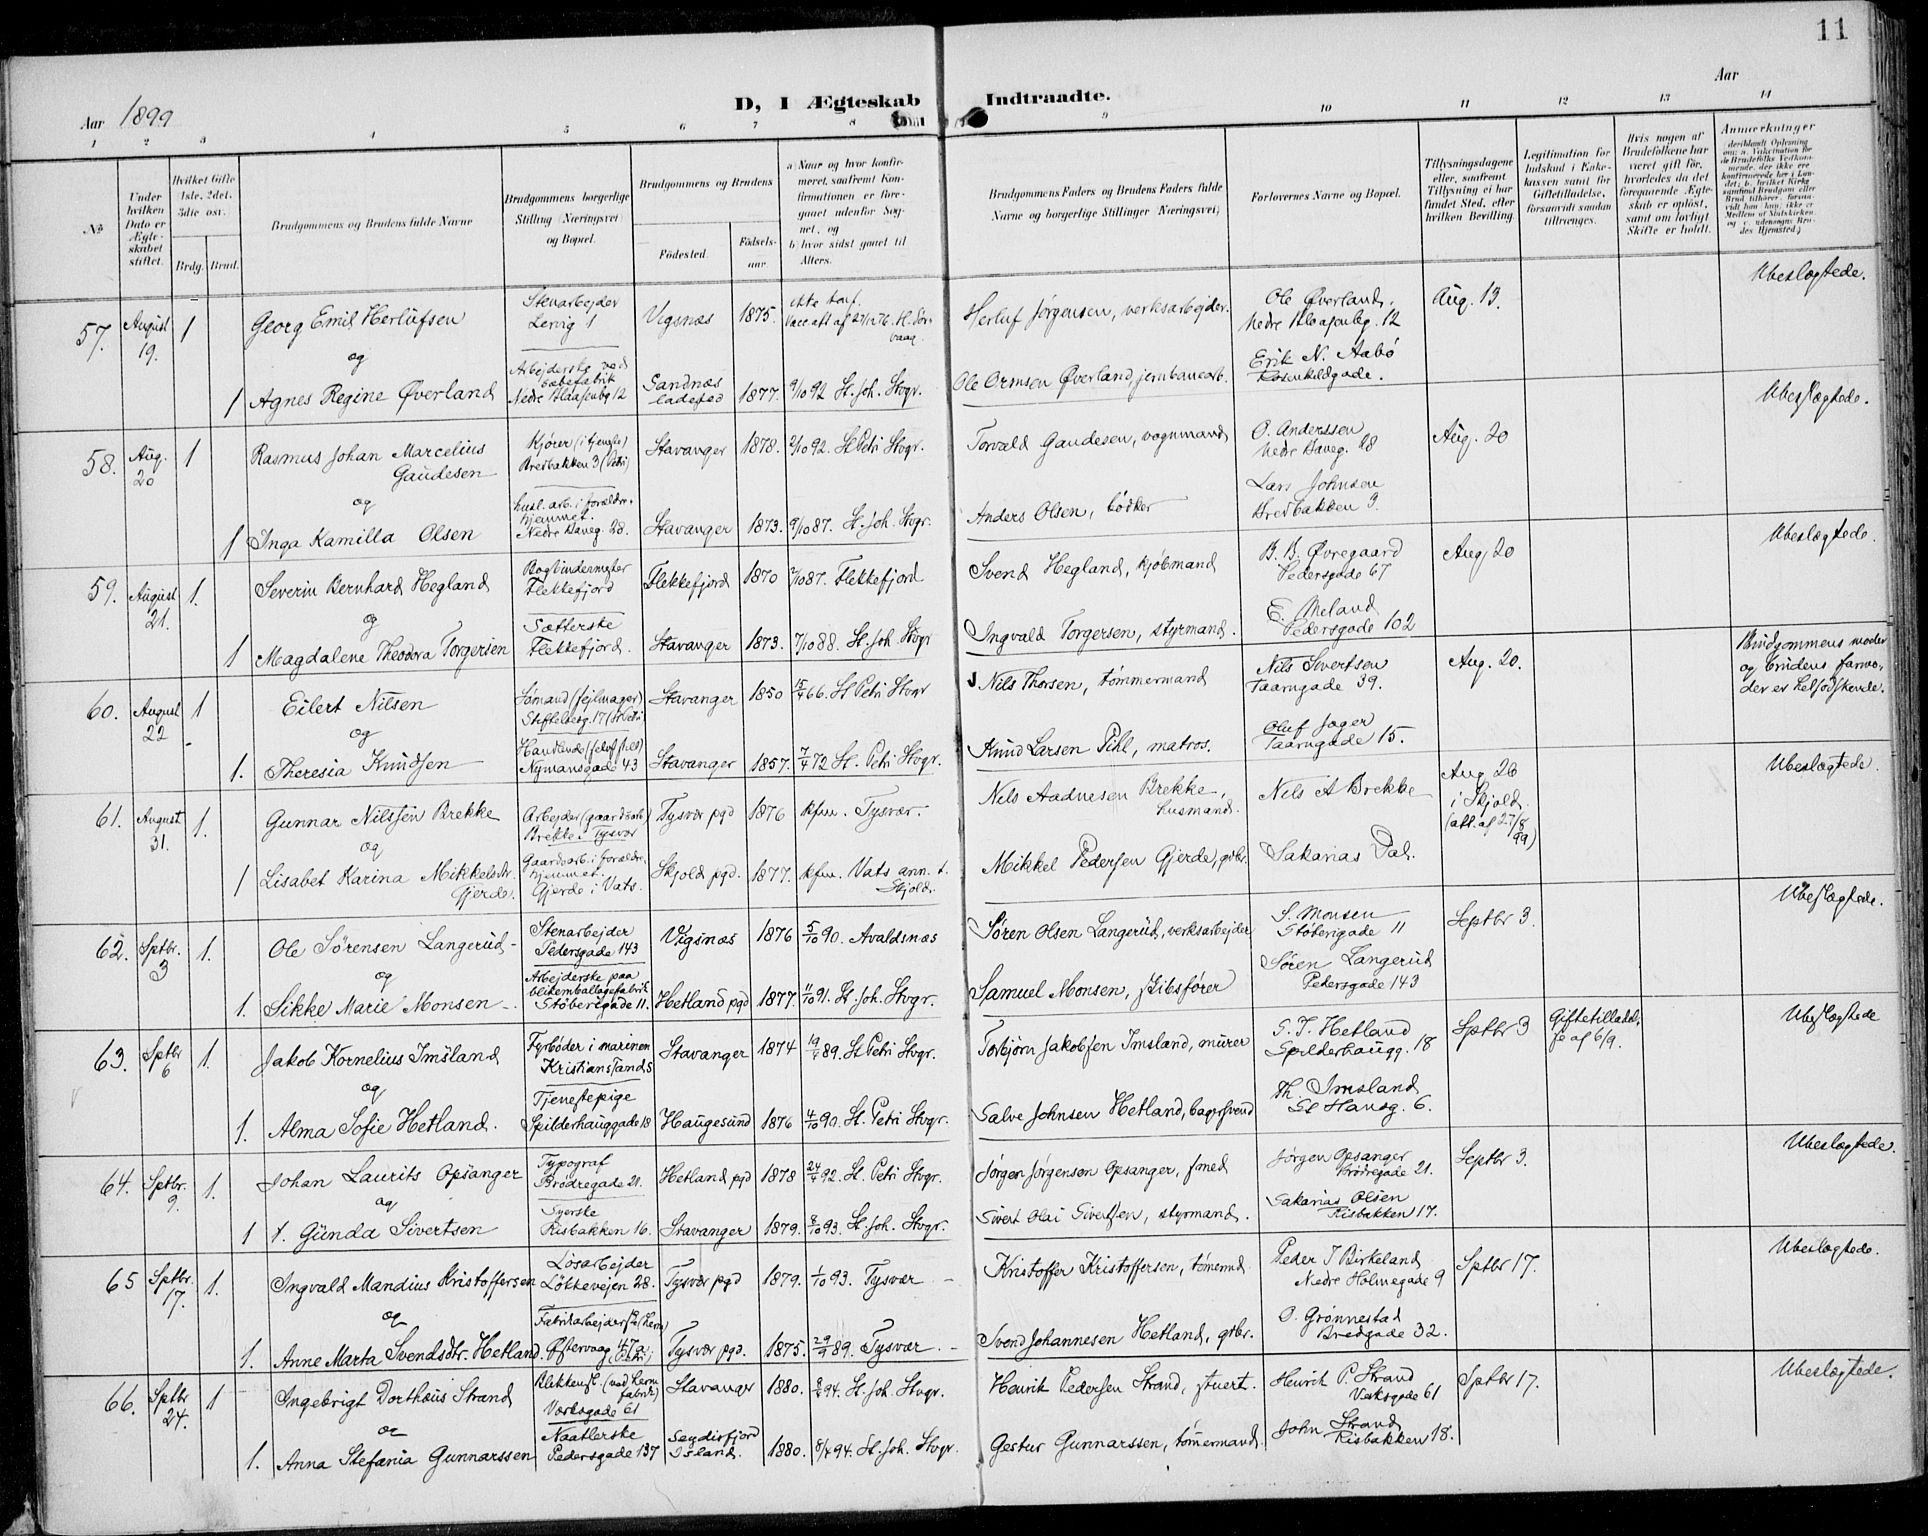 11
Aar 1899
D, I Ægteskab Indtraadte.
Aar
1 2 3 4 5 6 7 8 9 10 11 12 13 14
No
Under hvilken Dato er Ægteskabet stiftet.
Hvilket Gifte 1ste, 2det, 3die osv.
Brdg. Brud.
Brudgommens og Brudens fulde Navne
Brudgommens borgerlige Stilling (Næringsvei) og Bopæl.
Brudgommens og Brudens
Fødested.
Fødselsaar.
a) Naar og hvor konfirmeret, saafremt Konfirmationen er foregaaet udenfor Sognet, og
b) hvor sidst gaaet til Alters.
Brudgommens Faders og Brudens Faders fulde Navne og borgerlige Stillinger (Næringsvei)
Forlovernes Navne og Bopæl.
Tillysningsdagene eller, saafremt Tillysning ei har fundet Sted, efter hvilken Bevilling.
Legitimation for Indskud i Enkekassen samt for Giftetilladelse, forsaavidt saadan tiltrænges.
Hvis nogen af Brudefolkene har været gift før, hvorledes da det foregaaende Ægteskab er opløst, samt om lovligt Skifte er holdt.
Anmærkninger
57. August 19. 1 Georg Emil Herlufsen Stenarbejder Lervig 1 Vigsnæs 1875. Herluf Jørgensen, verksarbejder. Ole Øverland, Nedre Blaasenbg. 12 Aug. 13. Ubeslægtede.
og
1 Agnes Regine Øverland Nedre Blaasenbg 12 Sandnæs ladested 1877. 9/10 92 St. Joh. Stvgr. Ole Ormsen Øverland, jernbanearb. Erik N. Aabø Rosenkildgade.
58. Aug. 20 1 Rasmus Johan Marcelius Gaudesen Kjører (i tjeneste) Bredbakken 3 (Petri) Stavanger 1878. 2/10 92. St Petri Stvgr. Torvald Gaudesen, vognmand O. Anderssen Nedre Haveg. 28 Aug. 20 Ubeslægtede.
og
1 Inga Kamilla Olsen husl. arb. i forældrehjemmet. Nedre Haveg. 28. Stavanger 1873. 9/10 87. St. Joh. Stvgr. Anders Olsen, bødker Lars Johnsen Bredbakken 3.
59. August 21. 1. Severin Bernhard Hegland Bogbindermester Flekkefjord Flekkefjord 1870 2/10 87. Flekkefjord Svend Hegland, kjøbmand B. B. Øvregaard Pedersgade 67 Aug. 20 Ubeslægtede.
og
1 Magdalene Theodora Torgersen Sætterske Flekkefjord. Stavanger 1873. 7/10 88. St. Joh. Stvgr Ingvald Torgersen, styrmand. E. Meland Pedersgade 102
60. August 22 1 Eilert Nilsen Sømand (sejlmager) Stavanger 1850 15/4 66. St Petri Stvgr Nils Thorsen, tømmermand Nils Sivertsen Taarngade 39. Aug. 20. Brudgommens moder og brudens farmoder er helsødskende.
og
1. Theresia Knudsen Nymansgade 43 Stavanger 1857. 7/4 72 St. Petri Stvgr. Knud Larsen Pihl, matros. Oluf Jager Taarngade 15.
61. August 31. 1. Gunnar Nilssen Brekke Arbejder (gaardsarb) Brekke i Tysvær Tysvær pgd 1876 kfm. Tysvær. Nils Aadnesen Brekke, husmand. Nils A Brekke Aug 20 i Skjold (att. af 27/8 99) Ubeslægtede.
og
1 Lisabet Karina Mikkelsdtr. Gjerde. Gaardsarb. i forældrehjemmet. Gjerde i Vats. Skjold pgd. 1877. kfm. Vats ann. t. Skjold. Mikkel Pedersen Gjerde, gbr. Sakarias Dal.
62. Sptbr. 3 1. Ole Sørensen Langerud Stenarbejder Pedersgade 143 Vigsnæs 1876 5/10 90. Avaldsnæs Søren Olsen Langerud, verksarbejder S. Monsen Støberigade 11 Septbr 3. Ubeslægtede.
og
1. Sikke Marie Monsen Arbejderske paa blikemballagefabrik Støberigade 11. Hetland pgd 1877. 11/10 91. St. Joh. Stvgr. Samuel Monsen, skibsfører Søren Langerud Pedersgade 143
63. Sptbr 6 1. Jakob Kornelius Imsland Fyrbøder i marinen Kristianssands Stavanger 1874 St Petri Stvgr. Torbjørn Jakobsen Imsland, murer S. T. Hetland Spilderhaugg. 18 Sptbr 3 Giftetilladelse af 6/9. Ubeslægtede
og
1. Alma Sofie Hetland. Tjenestepige Spilderhauggade 18 Haugesund 1876 4/10 90. St. Petri Stvgr. Salve Johnsen Hetland, bagersvend Th. Imsland St Hansg. 6.
64. Sptbr. 9. 1. Johan Laurits Opsanger Typograf Brødregade 21. Hetland pgd 1878 24/4 92. St. Petri Stvgr. Jørgen Jørgensen Opsanger, smed Jørgen Opsanger Brødregade 21. Septbr 3. Ubeslægtede.
og
1 Gunda Sivertsen Syerske Risbakken 16. Stavanger 1879. 8/10 93. St. Joh. Stvgr. Sivert Olai Sivertsen, styrmand. Sakarias Olsen Risbakken 17.
65 Sptbr. 17. 1. Ingvald Mandius Kristoffersen Løsarbejder Løkkevejen 28. Tysvær pgd 1879. 1/10 93. Tysvær Kristoffer Kristoffersen, tømmmd. Peder T Birkeland Nedre Holmegade 9 Sptbr 17. Ubeslægtede.
og
1. Anne Marta Svendsdtr. Hetland. Østervaag Tysvær pgd. 1875. 29/9 89. Tysvær. Svend Johannesen Hetland, gbr. O. Grønnestad Bredgade 32.
66. Sptbr 24. 1 Ingebrigt Dorthæus Strand Værksgade 61 Stavanger 1880. St. Joh. Stvgr. Henrik Pedersen Strand, stuert. Henrik P. Strand Værksgade 61 Sptbr 17. Ubeslægtede.
og
1. Anna Stefania Gunnarssen Naatlerske Pedersgade 137 Seydisfjord Island. 1880. St. Joh. Stvgr. Gestur Gunnarssen, tømmermand. John Strand Risbakken 18.